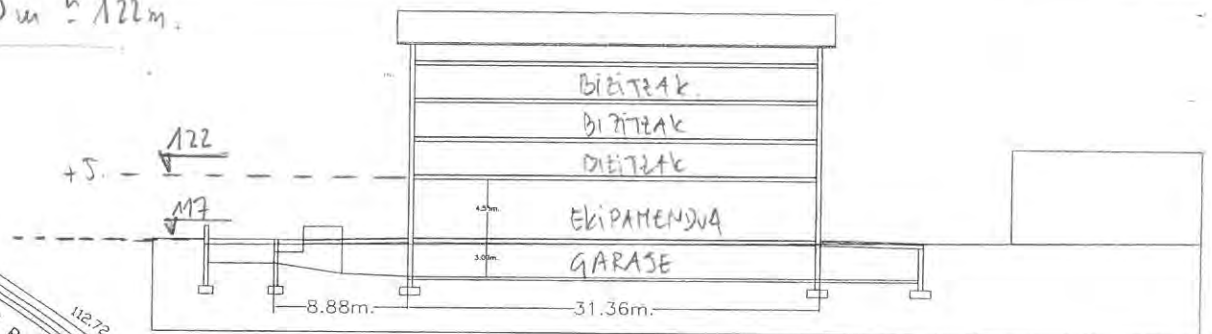 m ≈ 122m.
BIZITZAK.
BIZITZAK
BIZITZAK
122
+5.
117
4.55m.
EKIPAMENDUA
3.00m.
GARAJE
8.88m.
31.36m.
112.72